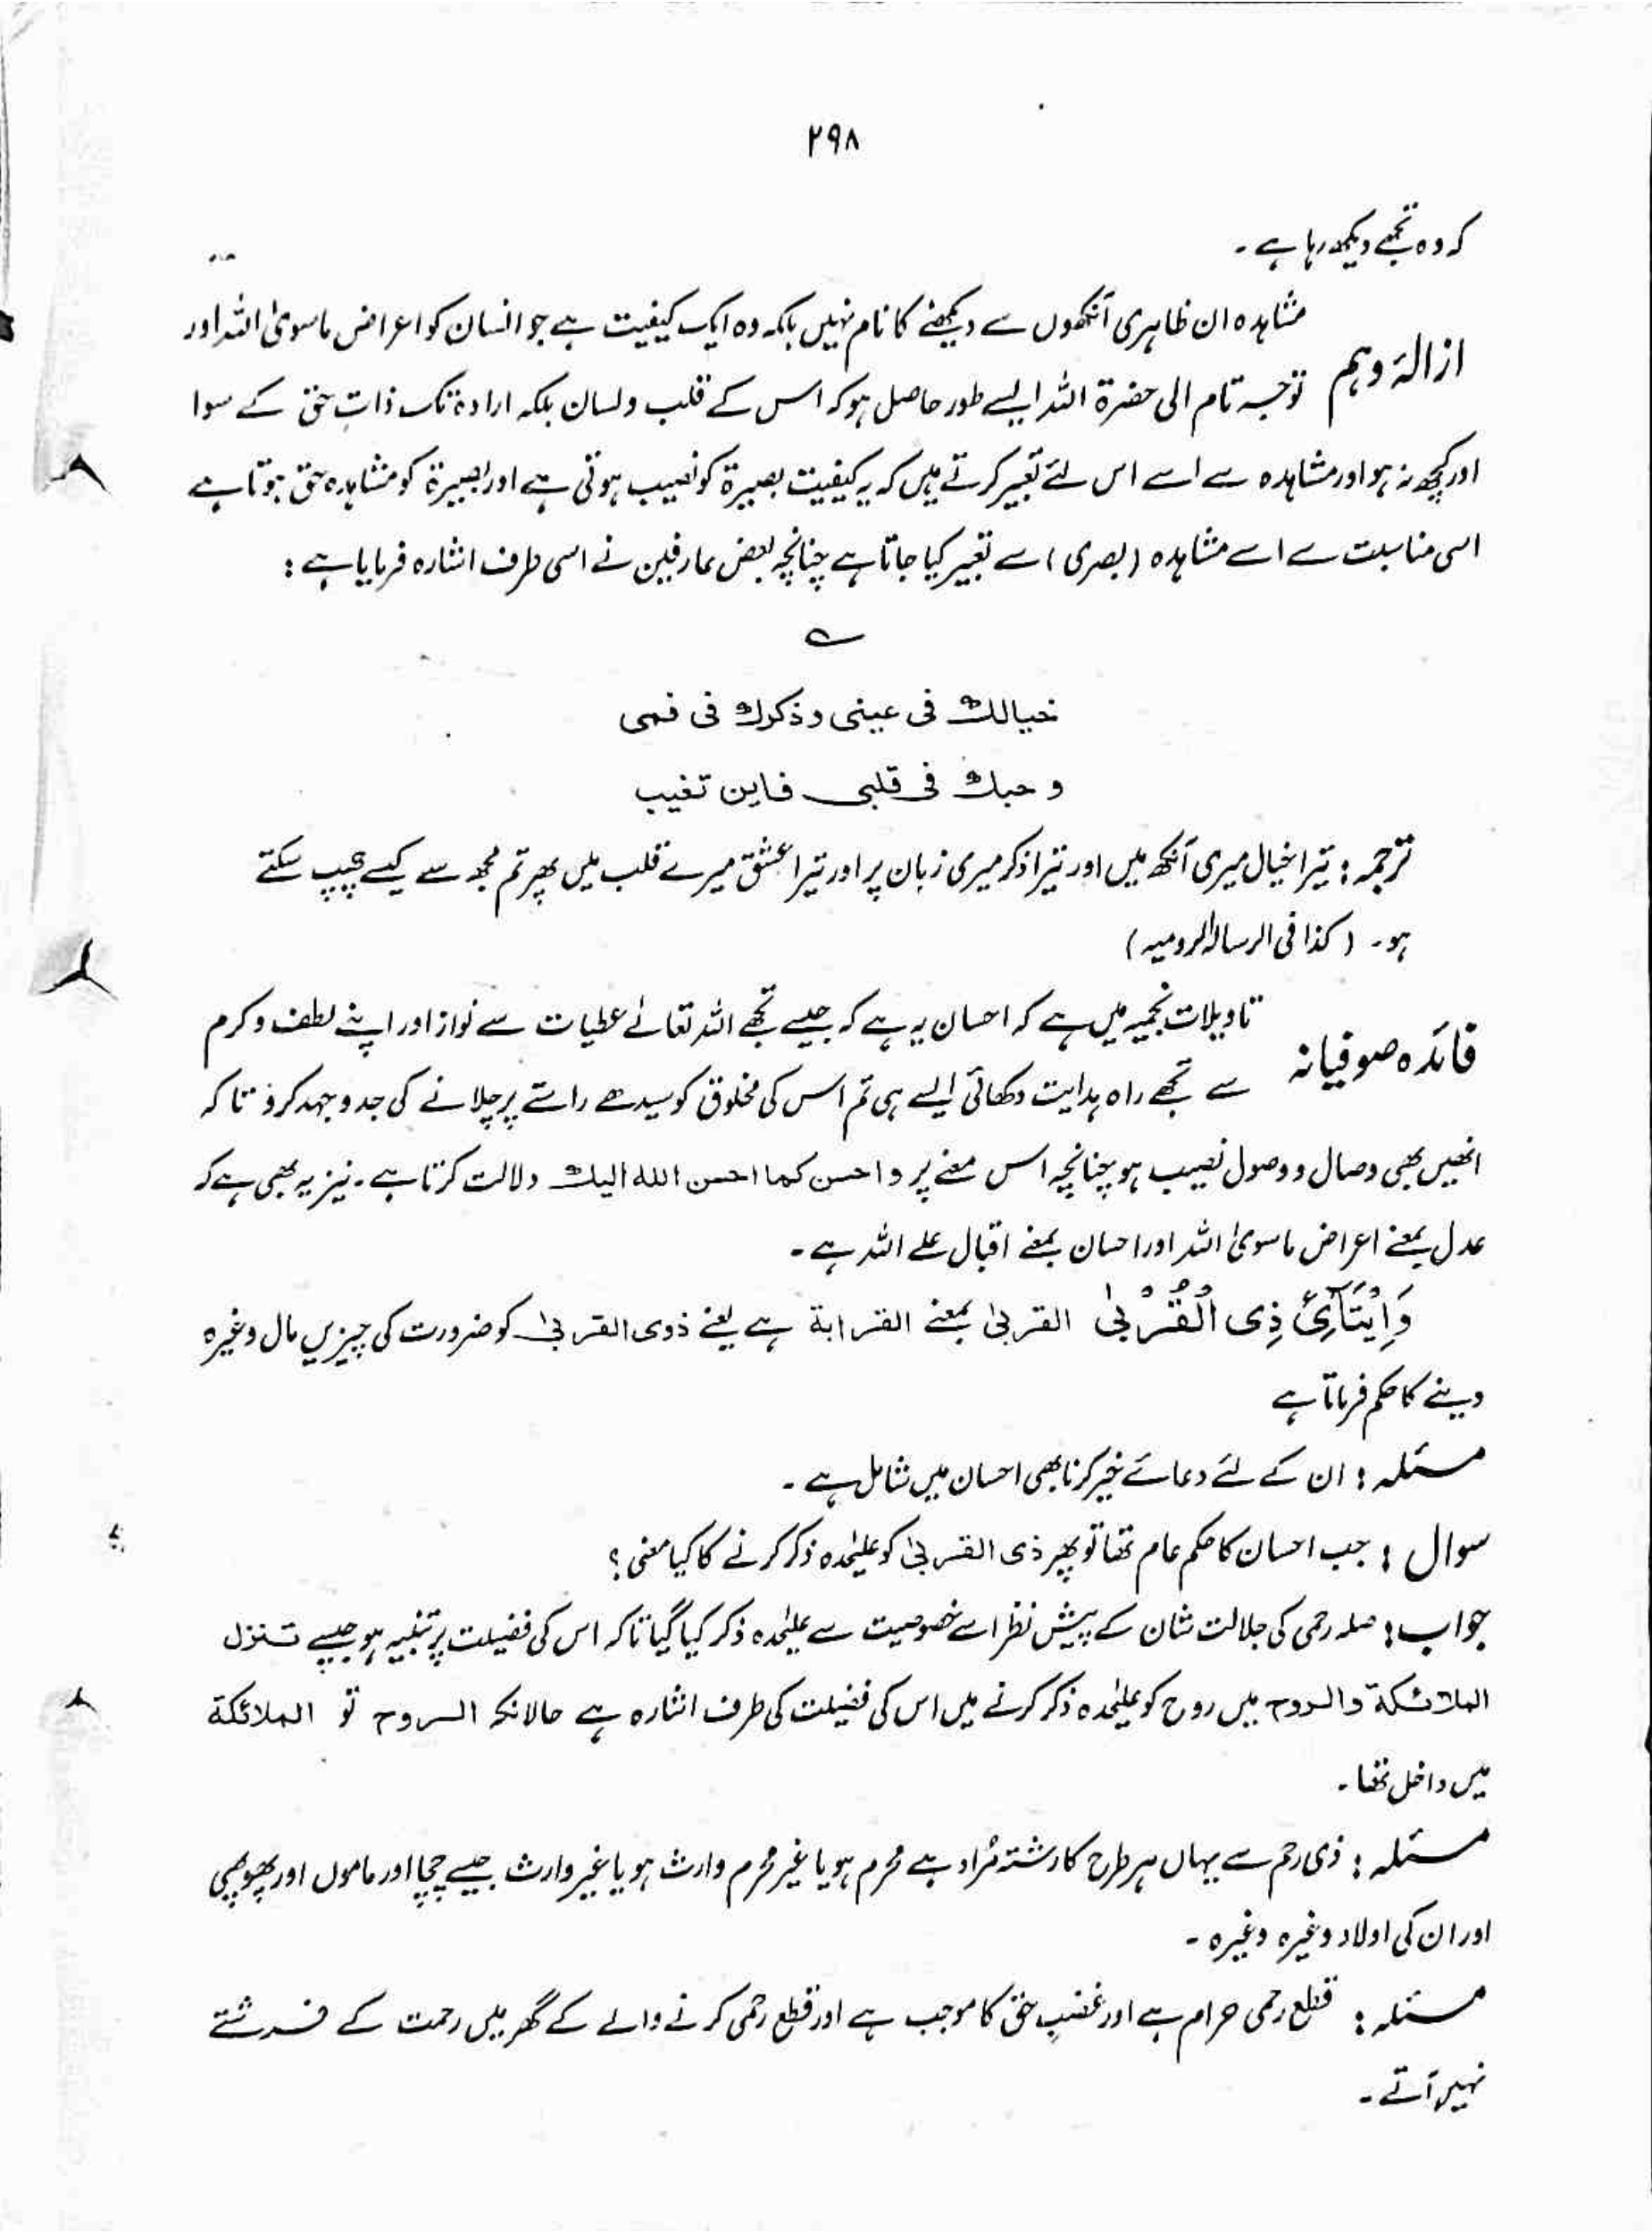 ۲۹۸
کہ وہ تجھے دیکھ رہا ہے ۔
ازالۂ وہم مشاہدہ ان ظاہری آنکھوں سے دیکھنے کا نام نہیں بلکہ وہ ایک کیفیت ہے جو انسان کو اعراض ماسویٰ اللہ اور
توجہ تام الی حضرۃ اللہ ایسے طور حاصل ہو کہ اس کے قلب ولسان بلکہ ارادہ تک ذاتِ حق کے سوا
اور کچھ نہ ہو اور مشاہدہ سے اسے اس لئے تعبیر کرتے ہیں کہ یہ کیفیت بصیرۃ کو نصیب ہوتی ہے اور بصیرۃ کو مشاہدہ حق ہوتا ہے
اسی مناسبت سے اسے مشاہدہ (بصری) سے تعبیر کیا جاتا ہے چنانچہ بعض عارفین نے اسی طرف اشارہ فرمایا ہے :
؎
خيالك فی عينی وذكرك فی فمی
و حبك فی قلبی فاين تغيب
ترجمہ : تیرا خیال میری آنکھ میں اور تیرا ذکر میری زبان پر اور تیرا عشق میرے قلب میں پھر تم مجھ سے کیسے چھپ سکتے
ہو ۔ (کذا فی الرسالۃ الرومیہ)
فائدہ صوفیانہ تاویلات نجمیہ میں ہے کہ احسان یہ ہے کہ جیسے تجھے اللہ تعالےٰ عطیات سے نوازا اور اپنے لطف و کرم
سے تجھے راہ ہدایت دکھائی ایسے ہی تم اس کی مخلوق کو سیدھے راستے پر چلانے کی جدوجہد کرو تاکہ
انھیں بھی وصال و وصول نصیب ہو چنانچہ اس معنے پر واحسن كما احسن الله اليك دلالت کرتا ہے ۔ نیز یہ بھی ہے کہ
عدل بمعنے اعراض ماسویٰ اللہ اور احسان بمعنے اقبال علے اللہ ہے ۔
وَاِيْتَآئِ ذِی الْقُرْبٰی القربیٰ بمعنے القرابة ہے یعنے ذوی القربیٰ کو ضرورت کی چیزیں مال وغیرہ
دینے کا حکم فرماتا ہے
مسئلہ : ان کے لئے دعائے خیر کرنا بھی احسان میں شامل ہے ۔
سوال : جب احسان کا حکم عام تھا تو پھر ذی القربیٰ کو علیٰحدہ ذکر کرنے کا کیا معنی ؟
جواب : صلہ رحمی کی جلالت شان کے پیش نظر اسے خصوصیت سے علیٰحدہ ذکر کیا گیا تاکہ اس کی فضیلت پر تنبیہ ہو جیسے تنزل
الملائكة والروح میں روح کو علیٰحدہ ذکر کرنے میں اس کی فضیلت کی طرف اشارہ ہے حالانکہ الروح تو الملائكة
میں داخل تھا ۔
مسئلہ : ذی رحم سے یہاں ہر طرح کا رشتہ مُراد ہے محرم ہو یا غیر محرم وارث ہو یا غیر وارث جیسے چچا اور ماموں اور پھوپھی
اور ان کی اولاد وغیرہ وغیرہ ۔
مسئلہ : قطع رحمی حرام ہے اور غضبِ حق کا موجب ہے اور قطع رحمی کرنے والے کے گھر میں رحمت کے فرشتے
نہیں آتے ۔